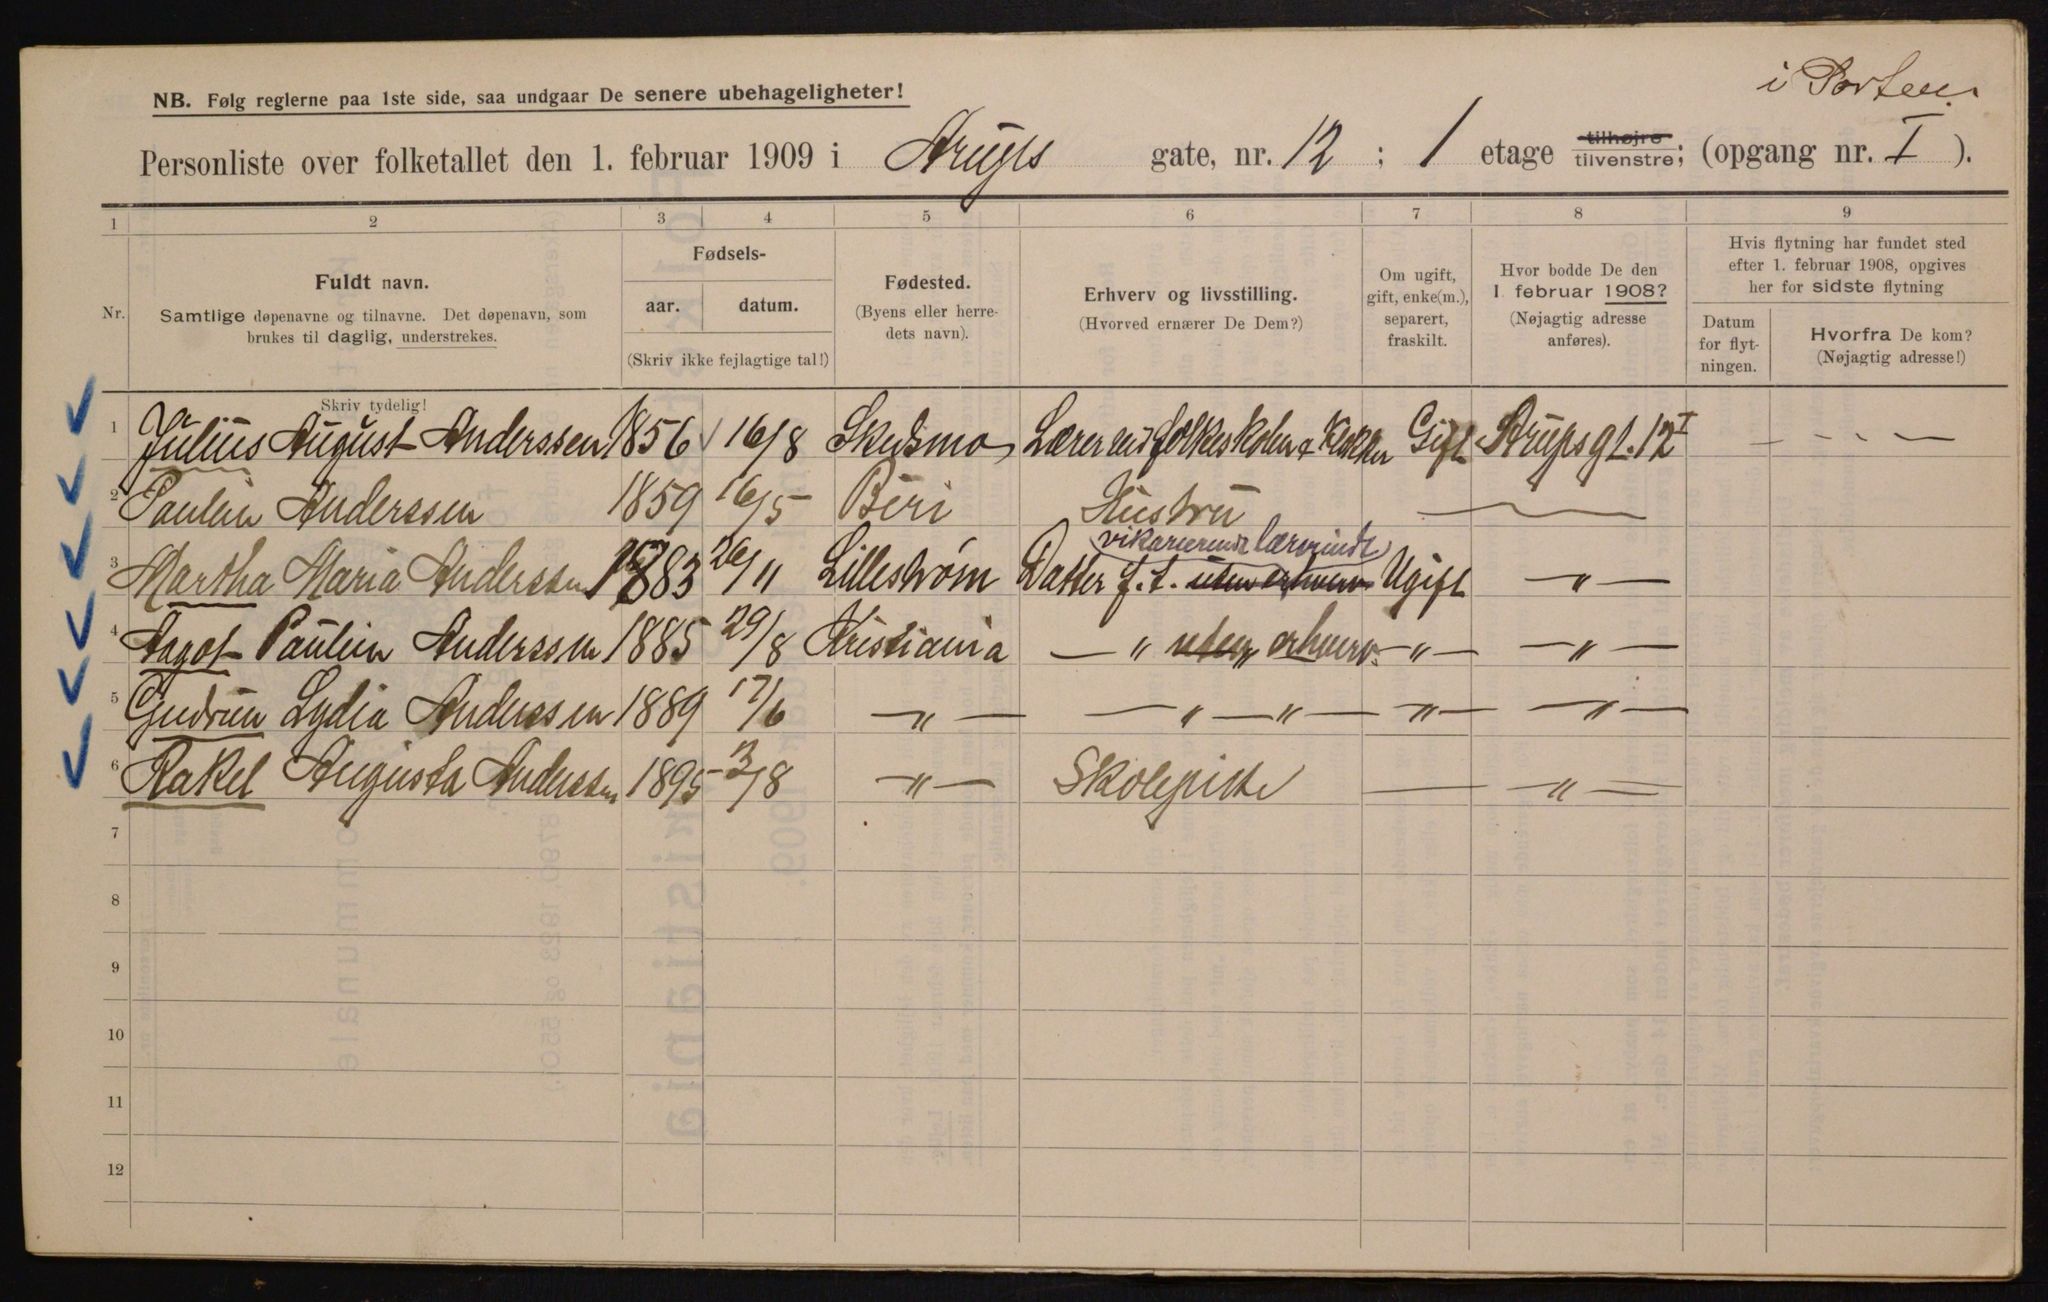 i Porten.
NB. Følg reglerne paa 1ste side, saa undgaar De senere ubehageligheter!
Personliste over folketallet den 1. februar 1909 i Arups gate, nr. 12 ; 1 etage tilhøjre tilvenstre; (opgang nr. I ).
1 2 3 4 5 6 7 8 9
Nr.
Fuldt navn.
Samtlige døpenavne og tilnavne. Det døpenavn, som
brukes til daglig, understrekes.
Fødsels-
aar. datum.
(Skriv ikke fejlagtige tal!)
Fødested.
(Byens eller herre-
dets navn).
Erhverv og livsstilling.
(Hvorved ernærer De Dem?)
Om ugift,
gift, enke(m.),
separert,
fraskilt.
Hvor bodde De den
1 februar 1908?
(Nøjagtig adresse
anføres).
Hvis flytning har fundet sted
efter 1. februar 1908, opgives
her for sidste flytning
Datum
for flyt-
ningen.
Hvorfra De kom?
(Nøjagtig adresse!)
Skriv tydelig!
1 Julius August Anderssen 1856 16/8 Skedsmo Lærer ved folkeskolen + klokker Gift Arupsgt. 12 I — - - —
2 Paulin Anderssen 1859 16/5 Biri Hustru —
vikarierende lærerinde
3 Martha Maria Anderssen 1883 26/11 Lillestrøm Datter f. t. uten erhverv Ugift — " —
4 Aagot Paulin Anderssen 1885 29/8 Kristiania — " uten erhverv. — " — — " —
5 Gudrun Lydia Anderssen 1889 17/6 — " — — " — " — — " — — " —
6 Rakel Augusta Anderssen 1895 13/8 — " — Skolepike — — " —
7
8
9
10
11
12